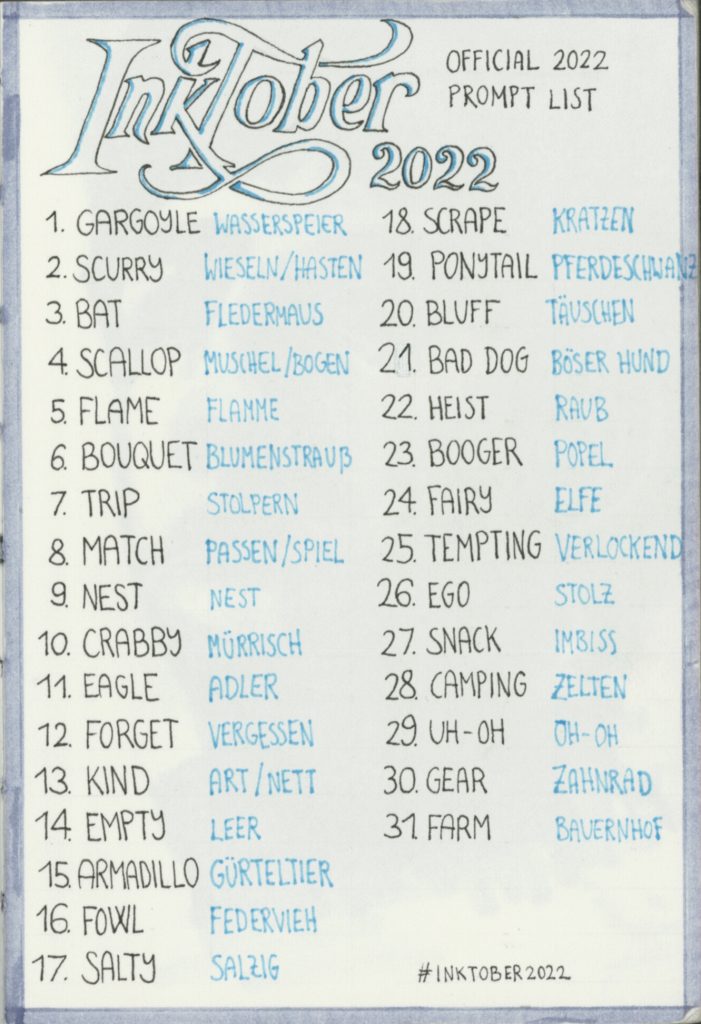 InkTober
OFFICIAL 2022
PROMPT LIST
2022
1. GARGOYLE WASSERSPEIER
2. SCURRY WIESELN/HASTEN
3. BAT FLEDERMAUS
4. SCALLOP MUSCHEL/BOGEN
5. FLAME FLAMME
6. BOUQUET BLUMENSTRAUß
7. TRIP STOLPERN
8. MATCH PASSEN/SPIEL
9. NEST NEST
10. CRABBY MÜRRISCH
11. EAGLE ADLER
12. FORGET VERGESSEN
13. KIND ART/NETT
14. EMPTY LEER
15. ARMADILLO GÜRTELTIER
16. FOWL FEDERVIEH
17. SALTY SALZIG
18. SCRAPE KRATZEN
19. PONYTAIL PFERDESCHWANZ
20. BLUFF TÄUSCHEN
21. BAD DOG BÖSER HUND
22. HEIST RAUB
23. BOOGER POPEL
24. FAIRY ELFE
25. TEMPTING VERLOCKEND
26. EGO STOLZ
27. SNACK IMBISS
28. CAMPING ZELTEN
29. UH-OH OH-OH
30. GEAR ZAHNRAD
31. FARM BAUERNHOF
#INKTOBER2022